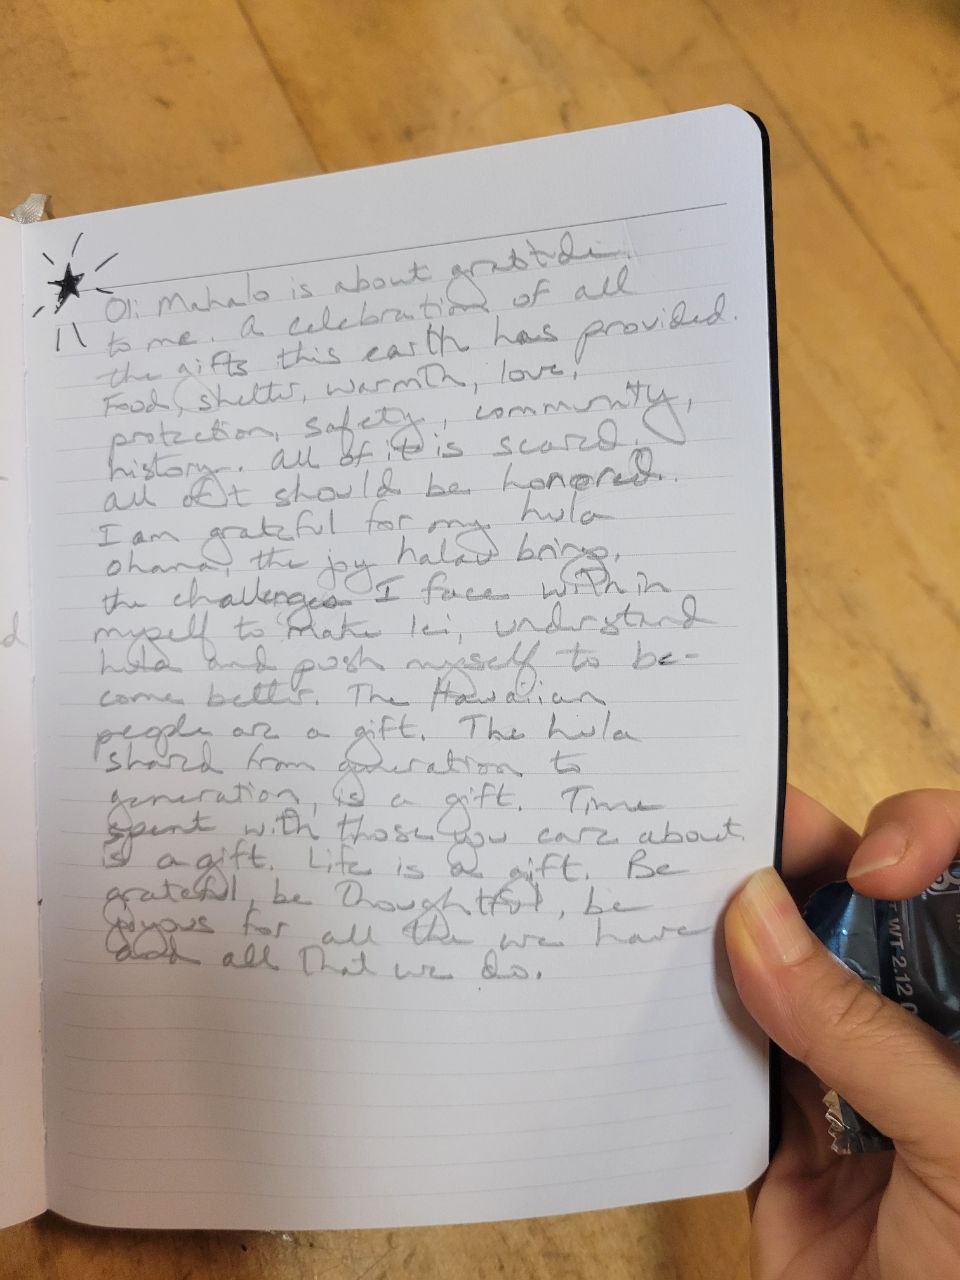 Oli Mahalo is about gratitude
to me. A celebration of all
the gifts this earth has provided.
Food, shelter, warmth, love,
protection, safety, community,
history. all of it is scared.
all of it should be honored.
I am grateful for my hula
ohana, the joy halau brings,
the challenges I face within
myself to make lei, understand
hula and push myself to be-
come better. The Hawaiian
people are a gift. The hula
shared from generation to
generation, is a gift. Time
spent with those you care about
is a gift. Life is a gift. Be
grateful, be thoughtful, be
joyous for all the we have
and all that we do.
d
T WT 2.12